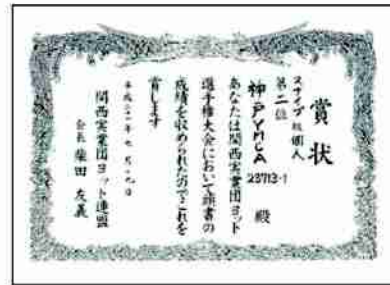 賞状
スナイプ級個人
第二位
神戸YMCA
23713-1
殿
あなたは関西実業団ヨット
選手権大会において頭書の
成績を収められたのでこれを
賞します
関西実業団ヨット連盟
会長 柴田 友義